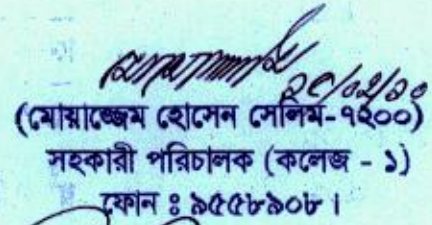 (মোয়াজ্জেম হোসেন সেলিম-৭২০০)
সহকারী পরিচালক (কলেজ - ১)
ফোন : ৯৫৫৮৯০৮।